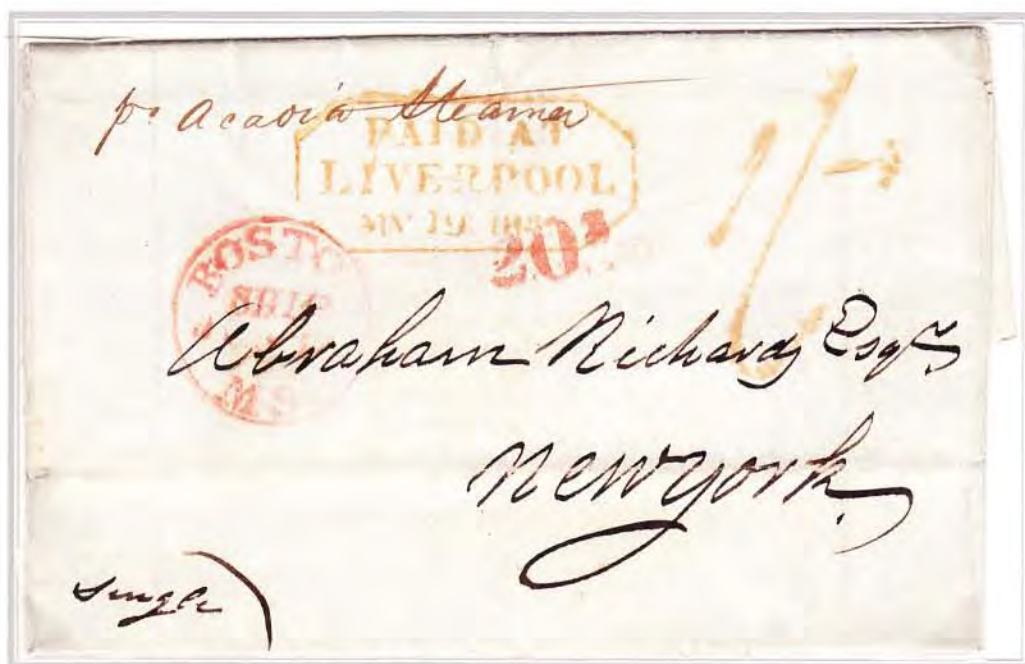 pr Acadia Steamer
PAID AT
LIVERPOOL
1/-
20
BOSTON
SHIP
MS
Abraham Richards Esqr.
New york.
single